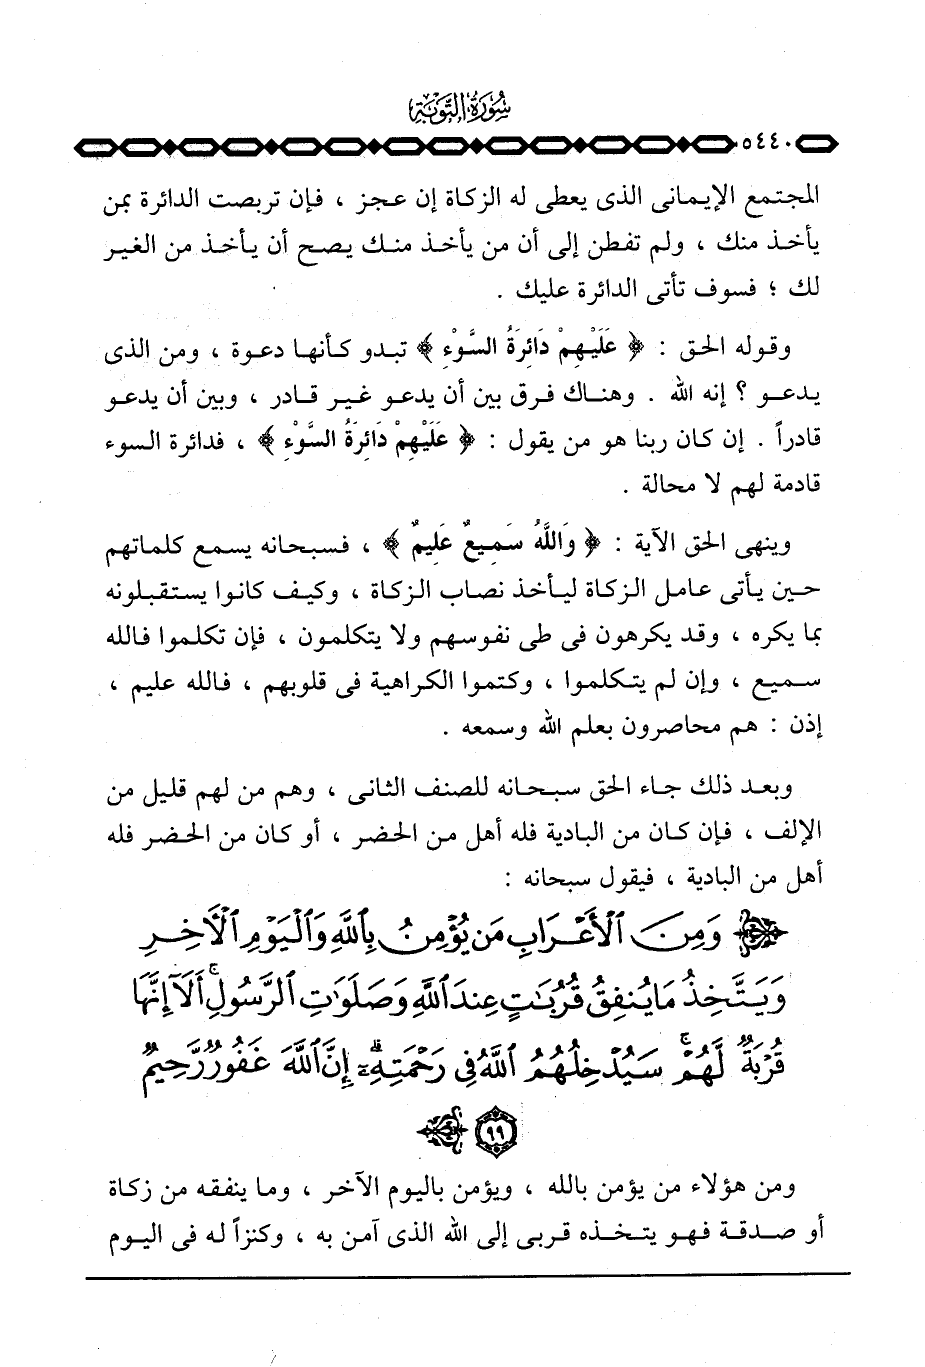 سُورَةُ التَّوْبَةِ
٥٤٤٠
المجتمع الإيمانى الذى يعطى له الزكاة إن عجز ، فإن تربصت الدائرة بمن
يأخذ منك ، ولم تفطن إلى أن من يأخذ منك يصح أن يأخذ من الغير
لك ؛ فسوف تأتى الدائرة عليك .
وقوله الحق : ﴿ عَلَيْهِمْ دَائِرَةُ السَّوْءِ ﴾ تبدو كأنها دعوة ، ومن الذى
يدعو ؟ إنه الله . وهناك فرق بين أن يدعو غير قادر ، وبين أن يدعو
قادراً . إن كان ربنا هو من يقول : ﴿ عَلَيْهِمْ دَائِرَةُ السَّوْءِ ﴾ ، فدائرة السوء
قادمة لهم لا محالة .
وينهى الحق الآية : ﴿ وَاللَّهُ سَمِيعٌ عَلِيمٌ ﴾ ، فسبحانه يسمع كلماتهم
حين يأتى عامل الزكاة ليأخذ نصاب الزكاة ، وكيف كانوا يستقبلونه
بما يكره ، وقد يكرهون فى طى نفوسهم ولا يتكلمون ، فإن تكلموا فالله
سميع ، وإن لم يتكلموا ، وكتموا الكراهية فى قلوبهم ، فالله عليم ،
إذن : هم محاصرون بعلم الله وسمعه .
وبعد ذلك جاء الحق سبحانه للصنف الثانى ، وهم من لهم قليل من
الإلف ، فإن كان من البادية فله أهل من الحضر ، أو كان من الحضر فله
أهل من البادية ، فيقول سبحانه :
وَمِنَ ٱلْأَعْرَابِ مَن يُؤْمِنُ بِٱللَّهِ وَٱلْيَوْمِ ٱلْآخِرِ
وَيَتَّخِذُ مَا يُنفِقُ قُرُبَٰتٍ عِندَ ٱللَّهِ وَصَلَوَٰتِ ٱلرَّسُولِ ۚ أَلَآ إِنَّهَا
قُرْبَةٌ لَّهُمْ ۚ سَيُدْخِلُهُمُ ٱللَّهُ فِى رَحْمَتِهِۦٓ ۗ إِنَّ ٱللَّهَ غَفُورٌ رَّحِيمٌ
٩٩
ومن هؤلاء من يؤمن بالله ، ويؤمن باليوم الآخر ، وما ينفقه من زكاة
أو صدقة فهو يتخذه قربى إلى الله الذى آمن به ، وكنزاً له فى اليوم